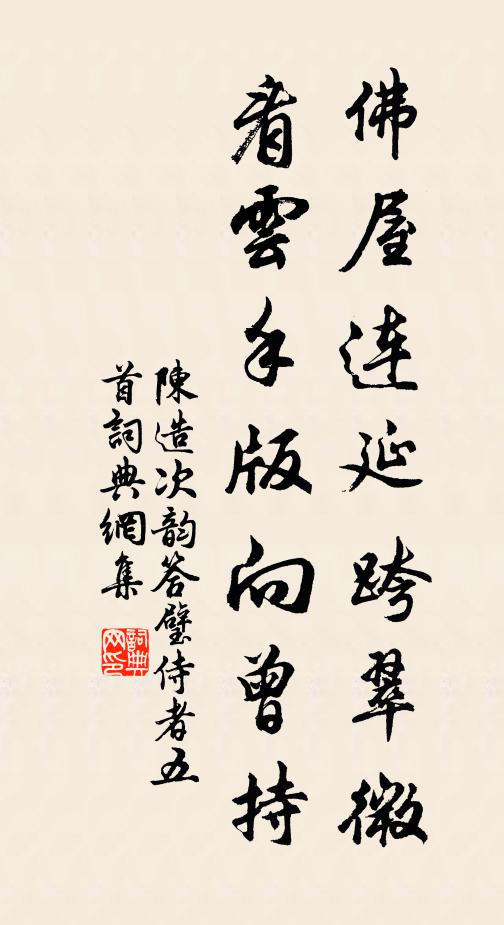 佛屋連延跨翠微
看雲手版向曾持
陳造次韵答璧侍者五
首詞典網集
詞典网印